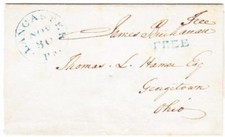 LANCASTER
NOV
30
Pa.
Free
James Buchanan
FREE
Thomas L. Hamer Esq
Georgetown
Ohio